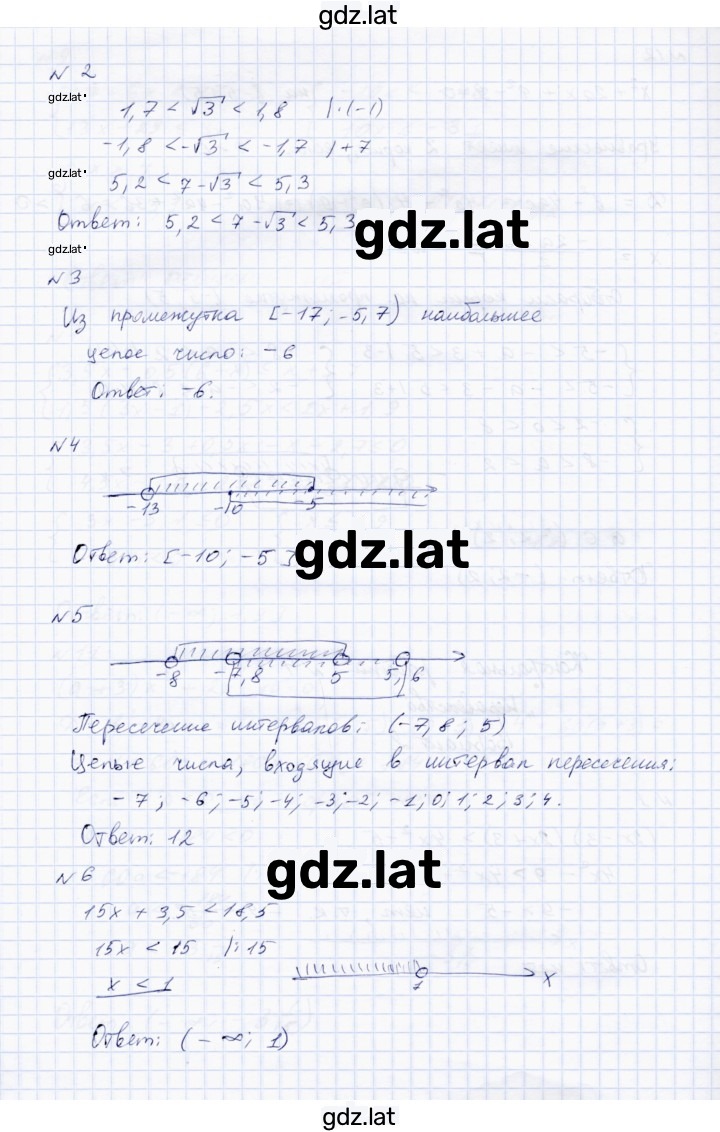 gdz.lat
N 2
gdz.lat
1,7 < √3 < 1,8 |·(-1)
-1,8 < -√3 < -1,7 |+7
gdz.lat
5,2 < 7 - √3 < 5,3
Ответ: 5,2 < 7 - √3 < 5,3
gdz.lat
gdz.lat
N3
Из промежутка [-17; -5,7) наибольшее
целое число: -6
Ответ: -6.
N4
-13 -10 -5
Ответ: [-10; -5]
gdz.lat
N5
-8 -7,8 5 5,6
Пересечение интервалов: (-7,8; 5)
Целые числа, входящие в интервал пересечения:
-7; -6; -5; -4; -3; -2; -1; 0; 1; 2; 3; 4.
Ответ: 12
gdz.lat
N6
15x + 3,5 < 18,5
15x < 15 |:15
x < 1
1 x
Ответ: (-∞; 1)
gdz.lat